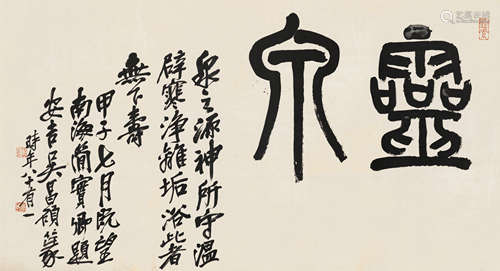 靈泉
泉之源神所守溫
辟寒淨雜垢浴此者
無下壽
甲子七月既望
南海簡實卿題
安吉吳昌碩篆
時年八十有一